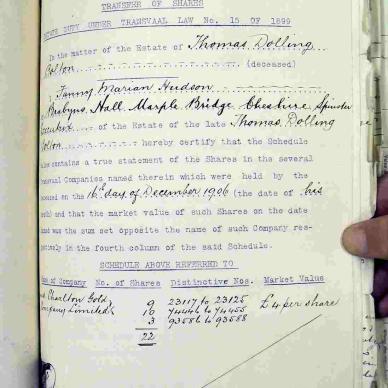 TRANSFER OF SHARES
DUTY UNDER TRANSVAAL LAW No. 15 OF 1899
In the matter of the Estate of Thomas Dolling
Bolton (deceased)
I, Fanny Marian Hudson
of Brabyns Hall Marple Bridge Cheshire Spinster
of the Estate of the late Thomas Dolling
Bolton hereby certify that the Schedule
contains a true statement of the Shares in the several
Companies named therein which were held by the
on the 16th day of December 1906 (the date of his
and that the market value of such Shares on the date
was the sum set opposite the name of such Company
in the fourth column of the said Schedule.
SCHEDULE ABOVE REFERRED TO
of Company No. of Shares Distinctive Nos. Market Value
Charlton Gold 9 23117 to 23125 £4 per share
Company Limited 10 74446 to 74455
3 93586 to 93588
22